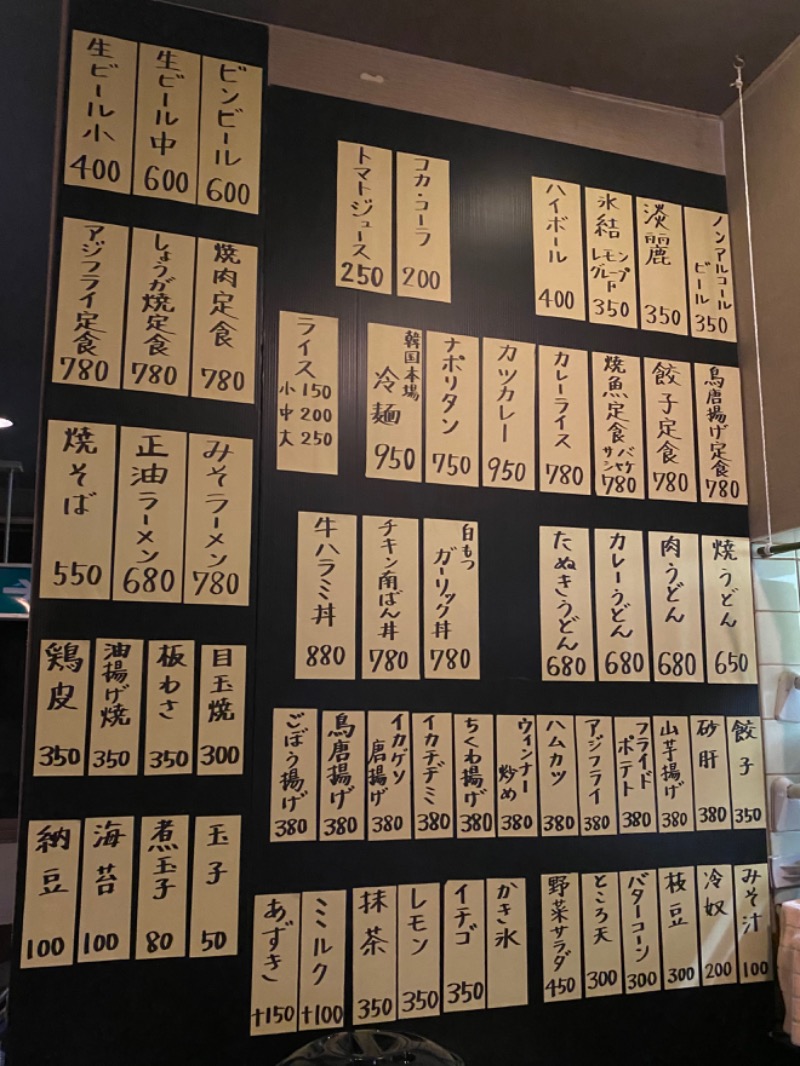 ビンビール 600
生ビール中 600
生ビール小 400
焼肉定食 780
しょうが焼定食 780
アジフライ定食 780
みそラーメン 780
正油ラーメン 680
焼そば 550
目玉焼 300
板わさ 350
油揚げ焼 350
鶏皮 350
玉子 50
煮玉子 80
海苔 100
納豆 100
ノンアルコール
ビール 350
淡麗 350
氷結
レモン
グレープ
フルート 350
ハイボール 400
コカ・コーラ 200
トマトジュース 250
鳥唐揚げ定食 780
餃子定食 780
焼魚定食
サバ
シャケ
780
カレーライス 780
カツカレー 950
ナポリタン 750
韓国本場
冷麺 950
ライス
小 150
中 200
大 250
焼うどん 650
肉うどん 680
カレーうどん 680
たぬきうどん 680
白もつ
ガーリック丼 780
チキン南ばん丼 780
牛ハラミ丼 880
餃子 350
砂肝 380
山芋揚げ 380
フライド
ポテト 380
アジフライ 380
ハムカツ 380
ウィンナー
炒め 380
ちくわ揚げ 380
イカチヂミ 380
イカゲソ
唐揚げ 380
鳥唐揚げ 380
ごぼう揚げ 380
みそ汁 100
冷奴 200
枝豆 300
バターコーン 300
ところ天 300
野菜サラダ 450
かき氷
イチゴ 350
レモン 350
抹茶 350
ミルク +100
あずき +150